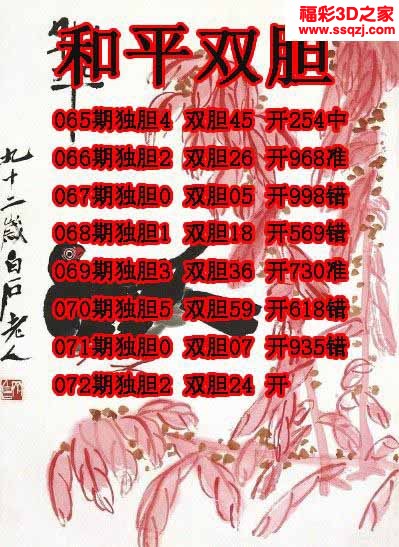 福彩3D之家
www.ssqzj.com
和平双胆
065期独胆4 双胆45 开254中
066期独胆2 双胆26 开968准
067期独胆0 双胆05 开998错
068期独胆1 双胆18 开569错
069期独胆3 双胆36 开730准
070期独胆5 双胆59 开618错
071期独胆0 双胆07 开935错
072期独胆2 双胆24 开
九十二岁白石老人